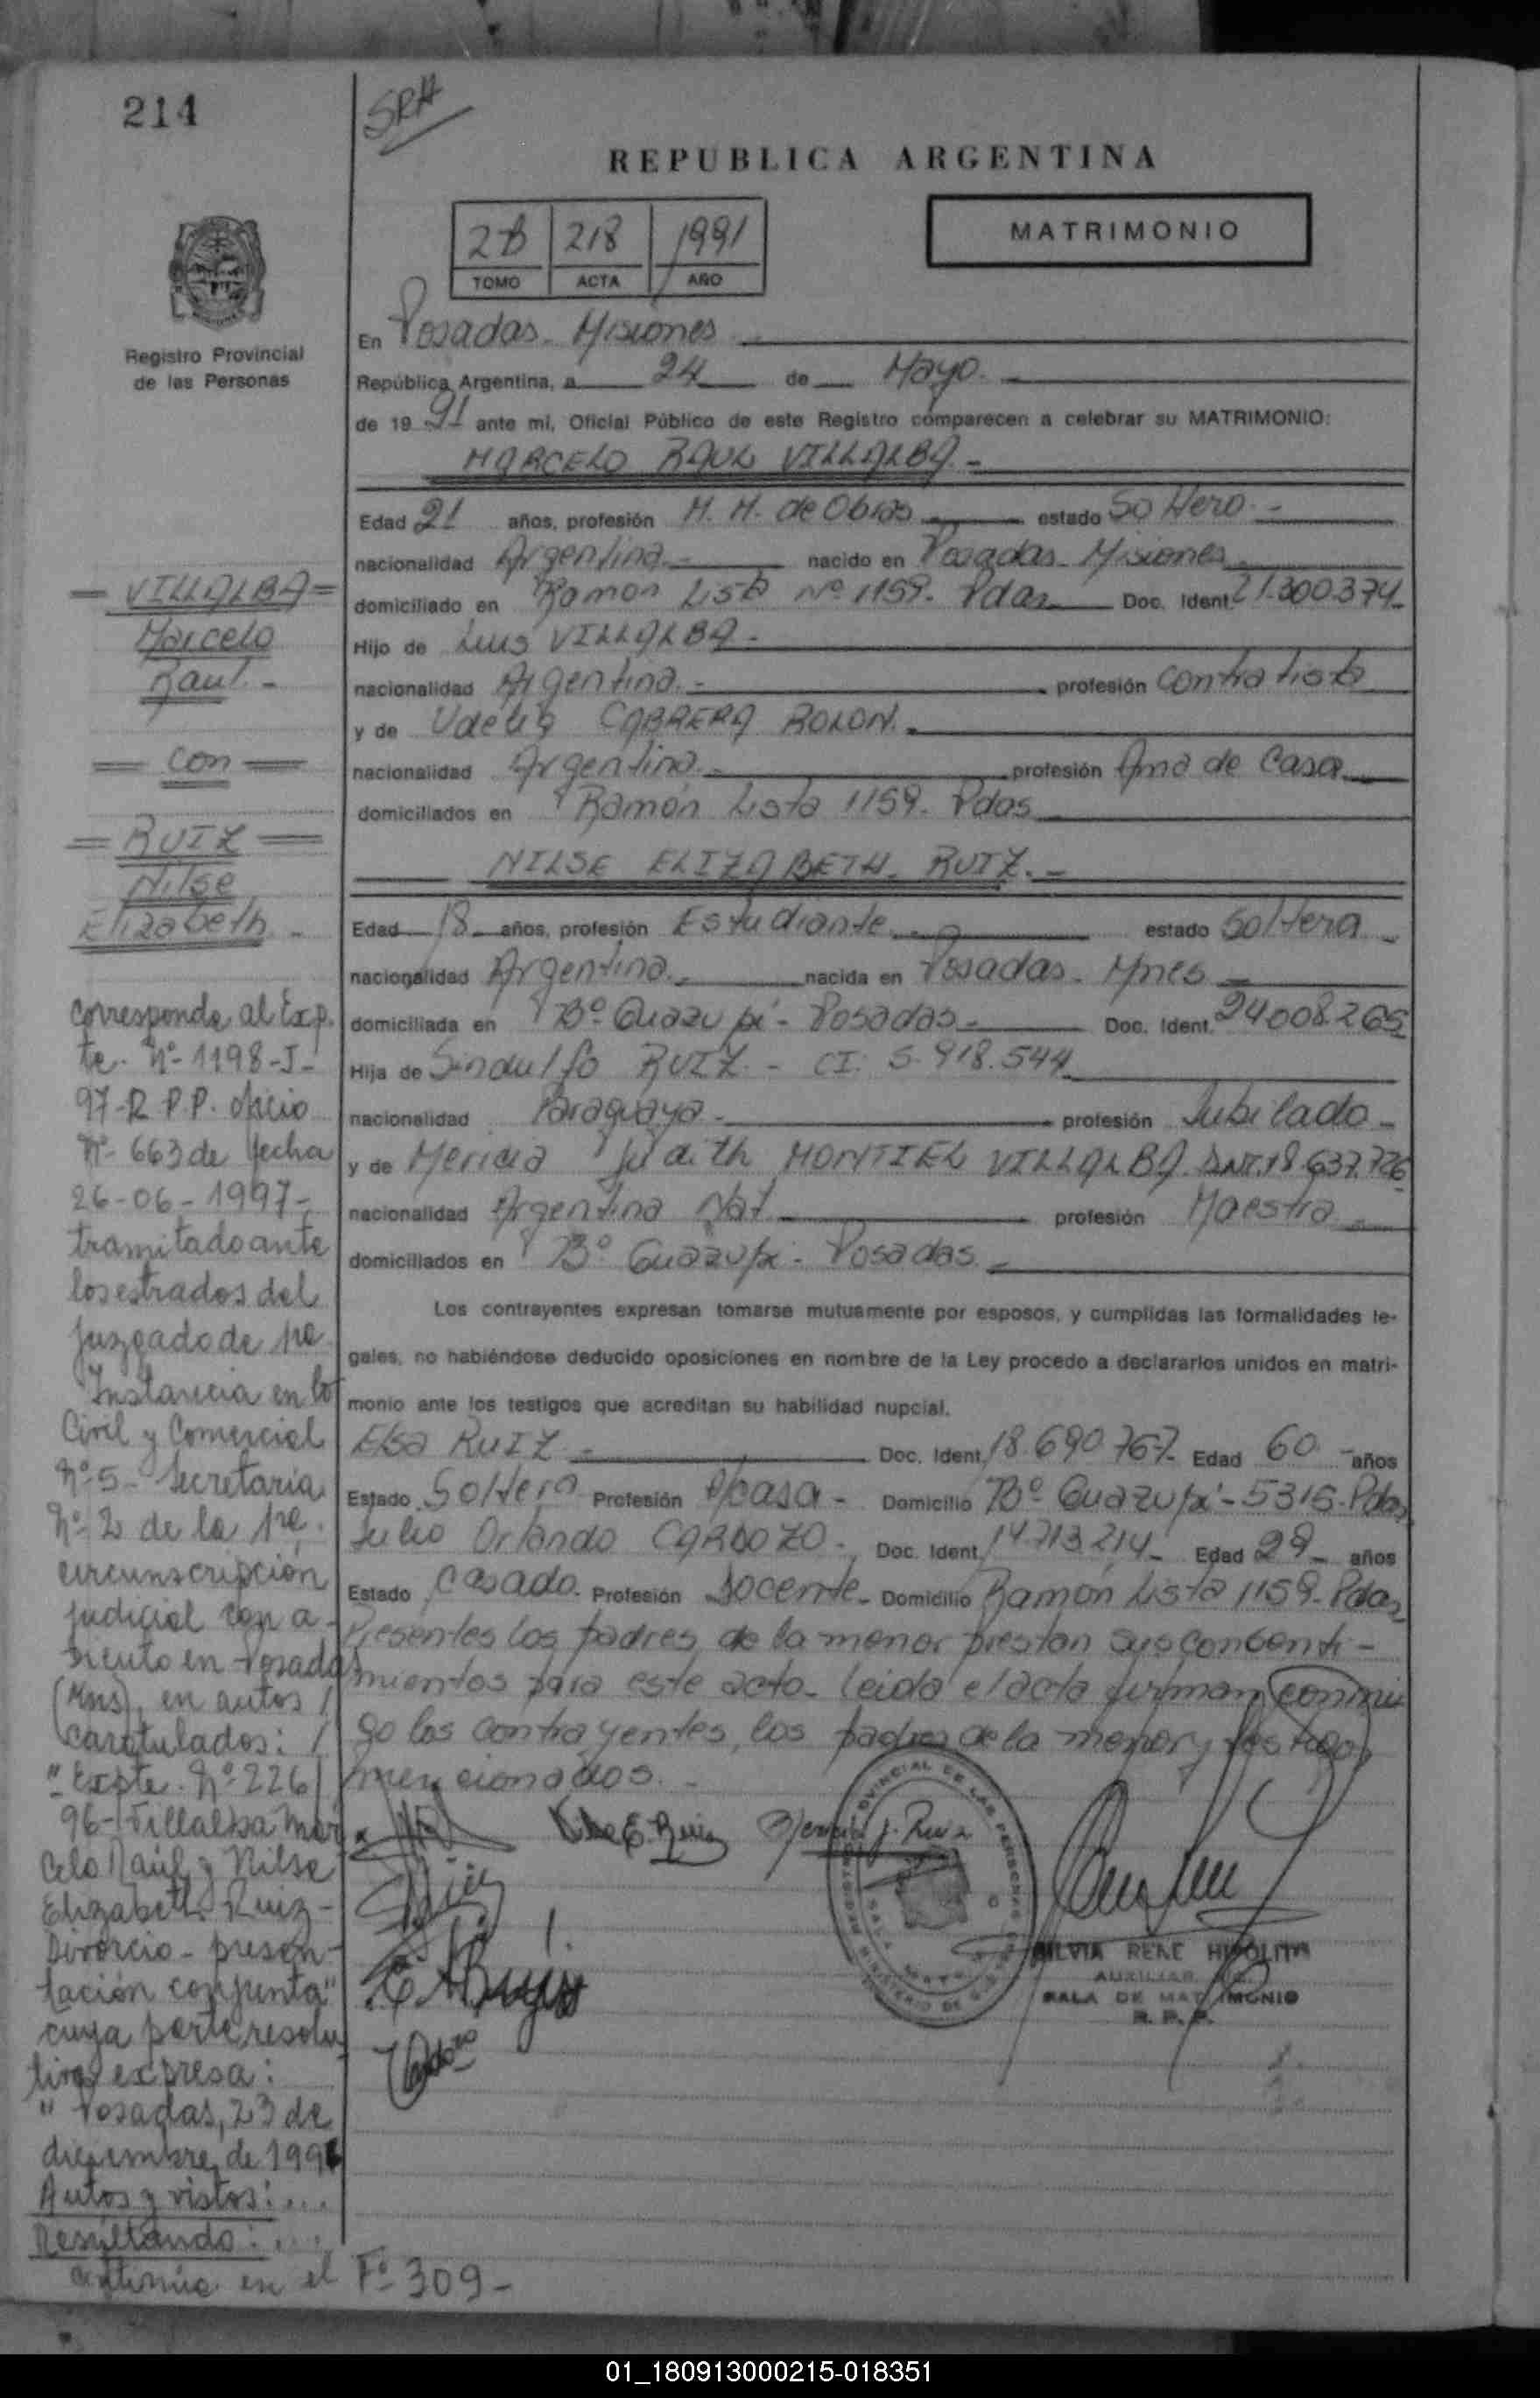 214
SRH
REPUBLICA ARGENTINA
2B 218 1991
TOMO ACTA AÑO
MATRIMONIO
Registro Provincial
de las Personas
En Posadas. Misiones
República Argentina, a 24 de Mayo.
de 1991 ante mi, Oficial Público de este Registro comparecen a celebrar su MATRIMONIO:
MARCELO RAUL VILLALBA.-
Edad 21 años, profesión M. M. de Obras estado Soltero.-
nacionalidad Argentina.- nacido en Posadas. Misiones
domiciliado en Ramon Lista Nº 1159. Pdas Doc. Ident. 21.300.374.
Hijo de Luis VILLALBA.-
nacionalidad Argentina.- profesión Contratista
y de CABRERA ROLON.
nacionalidad Argentina.- profesión Ama de Casa
domiciliados en Ramón Lista 1159. Pdas
NILSE ELIZABETH RUIZ.-
Edad 18 años, profesión Estudiante estado Soltera
nacionalidad Argentina. nacida en Posadas. Mnes
domiciliada en Bº Guazupi - Posadas - Doc. Ident. 24008265
Hija de Sindulfo RUIZ - CI: 5.918.544
nacionalidad Paraguaya - profesión Jubilado -
y de Judith MONTIEL VILLALBA DNI. 18.637.726
nacionalidad Argentina Nat. profesión Maestra
domiciliados en Bº Guazupi - Posadas.
Los contrayentes expresan tomarse mutuamente por esposos, y cumplidas las formalidades le-
gales, no habiéndose deducido oposiciones en nombre de la Ley procedo a declararlos unidos en matri-
monio ante los testigos que acreditan su habilidad nupcial.
Elsa RUIZ - Doc. Ident. 18.690.767 Edad 60 años
Estado Soltera Profesión A/casa - Domicilio Bº Guazupi - 5315. Pdas
Julio Orlando CARDOZO - Doc. Ident. 14.713.214 Edad 29 años
Estado Casado. Profesión Docente Domicilio Ramón Lista 1159 - Pdas
Presentes los padres de la menor prestan sus consenti-
mientos para este acto. Leida el acta firman conmi
go los contrayentes, los padres de la menor y testigos
mencionados.
Nilse E. Ruiz
J. Ruiz
Cardozo
SILVIA RENE HIPOLITO
AUXILIAR
SALA DE MATRIMONIO
R. P. P.
= VILLALBA =
Marcelo
Raul -
= con =
= RUIZ =
Nilse
Elizabeth. -
Corresponde al Exp.
te. Nº 1198-J-
97-R.P.P. oficio
Nº 663 de fecha
26-06-1997-
tramitado ante
los estrados del
juzgado de 1ra.
Instancia en lo
Civil y Comercial
Nº 5 - Secretaria
Nº 2 de la 1ra.
circunscripción
judicial con a-
siento en Posadas
(Mns), en autos /
caratulados: /
"Expte. Nº 226/
96 - Villalba Mar
celo Raúl y Nilse
Elizabeth Ruiz -
Divorcio - presen-
tación conjunta"
cuya parte resolu
tiva expresa:
"Posadas, 23 de
diciembre de 1996
Autos y vistos: ...
Resultando: ...
continúa en el Fº 309 -
01_180913000215-018351